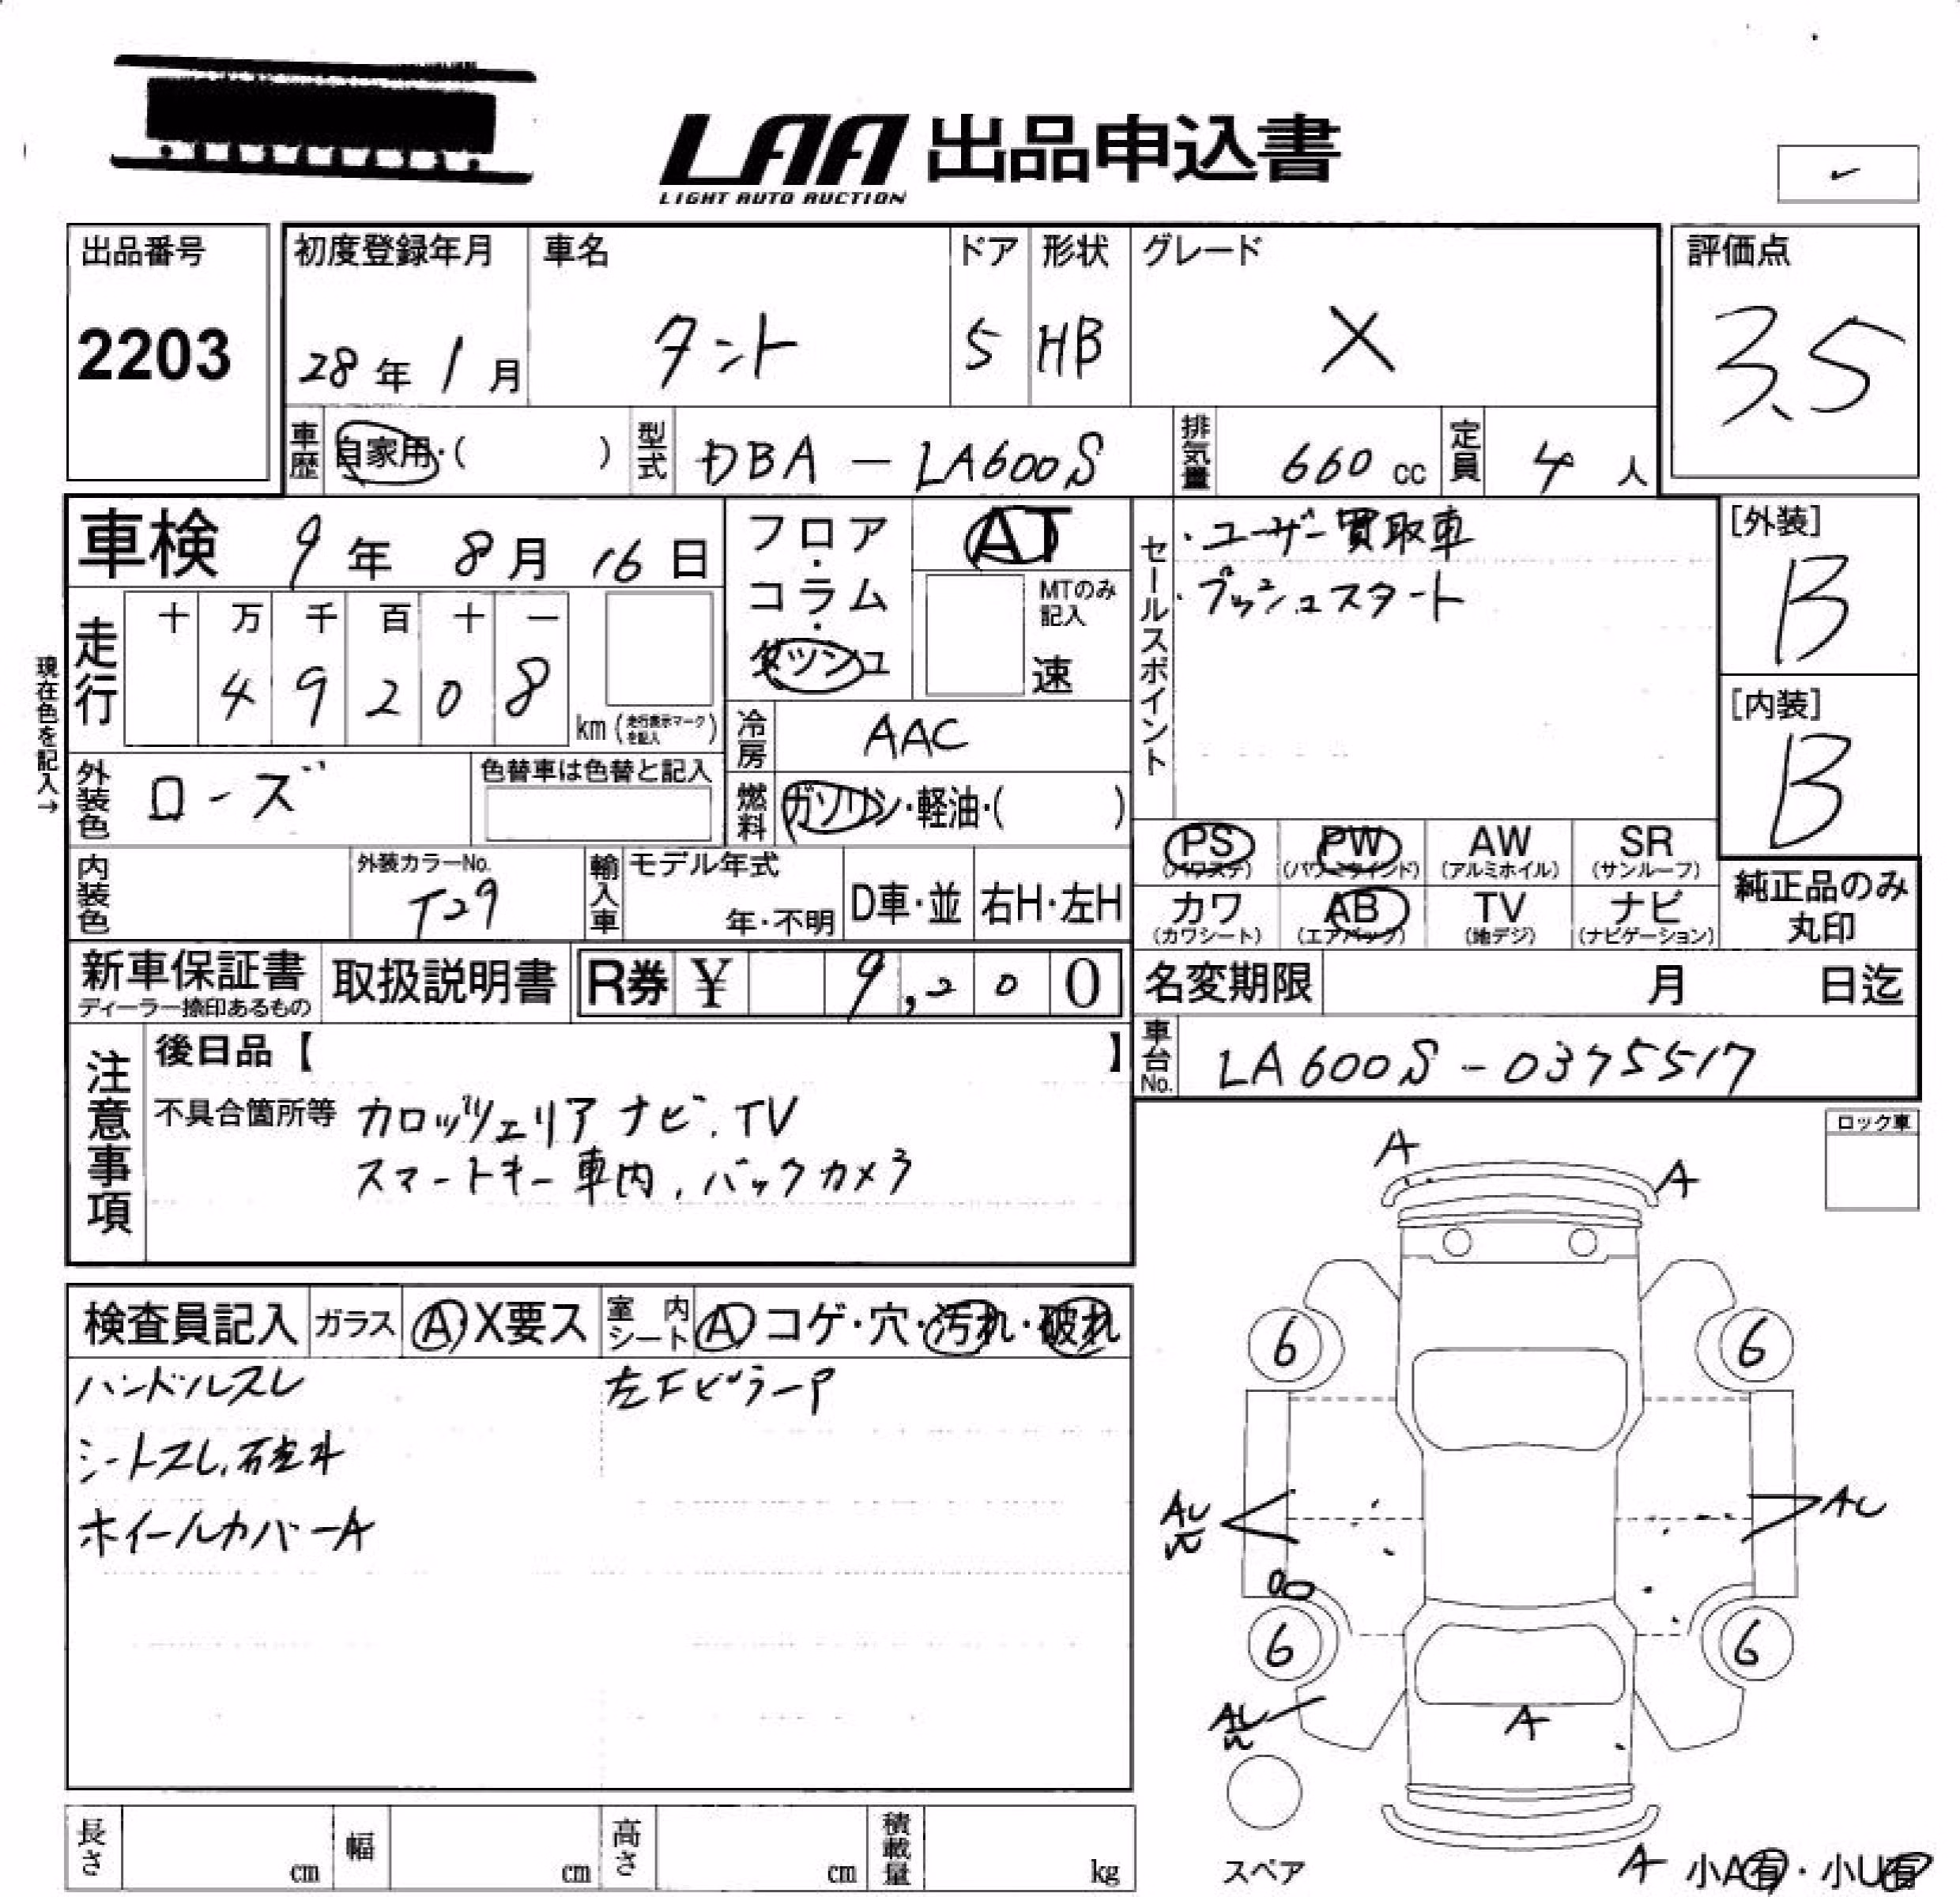 LAA 出品申込書
LIGHT AUTO AUCTION
出品番号
2203
初度登録年月
28年 1月
車名
タント
ドア
5
形状
HB
グレード
X
評価点
3.5
車歴
自家用・( )
型式
DBA - LA600S
排気量
660 cc
定員
4 人
車検 9年 8月 16日
現在色を記入→
走行
十 万 千 百 十 一
4 9 2 0 8
km (走行表示マークを記入)
フロア・コラム・ダッシュ
AT
MTのみ記入
速
冷房
AAC
燃料
ガソリン・軽油・( )
セールスポイント
・ユーザー買取車
・プッシュスタート
[外装]
B
[内装]
B
外装色
ローズ
色替車は色替と記入
内装色
外装カラーNo.
T29
輸入車
モデル年式
年・不明
D車・並
右H・左H
PS (パワステ)
PW (パワーウインド)
AW (アルミホイル)
SR (サンルーフ)
カワ (カワシート)
AB (エアバック)
TV (地デジ)
ナビ (ナビゲーション)
純正品のみ丸印
新車保証書
ディーラー捺印あるもの
取扱説明書
R券 ¥ 9,200
名変期限 月 日迄
車台No.
LA600S-0375517
注意事項
後日品【 】
不具合箇所等 カロッツェリア ナビ.TV
スマートキー車内, バックカメラ
ロック車
検査員記入
ガラス
A X要ス
室内シート
A コゲ・穴・汚れ・破れ
ハンドルスレ
左FピラーP
シートスレ,
ホイールカバーA
A
A
6
6
AU
AU
6
6
AU
A
スペア
A 小A有・小U有
長さ cm
幅 cm
高さ cm
積載量 kg